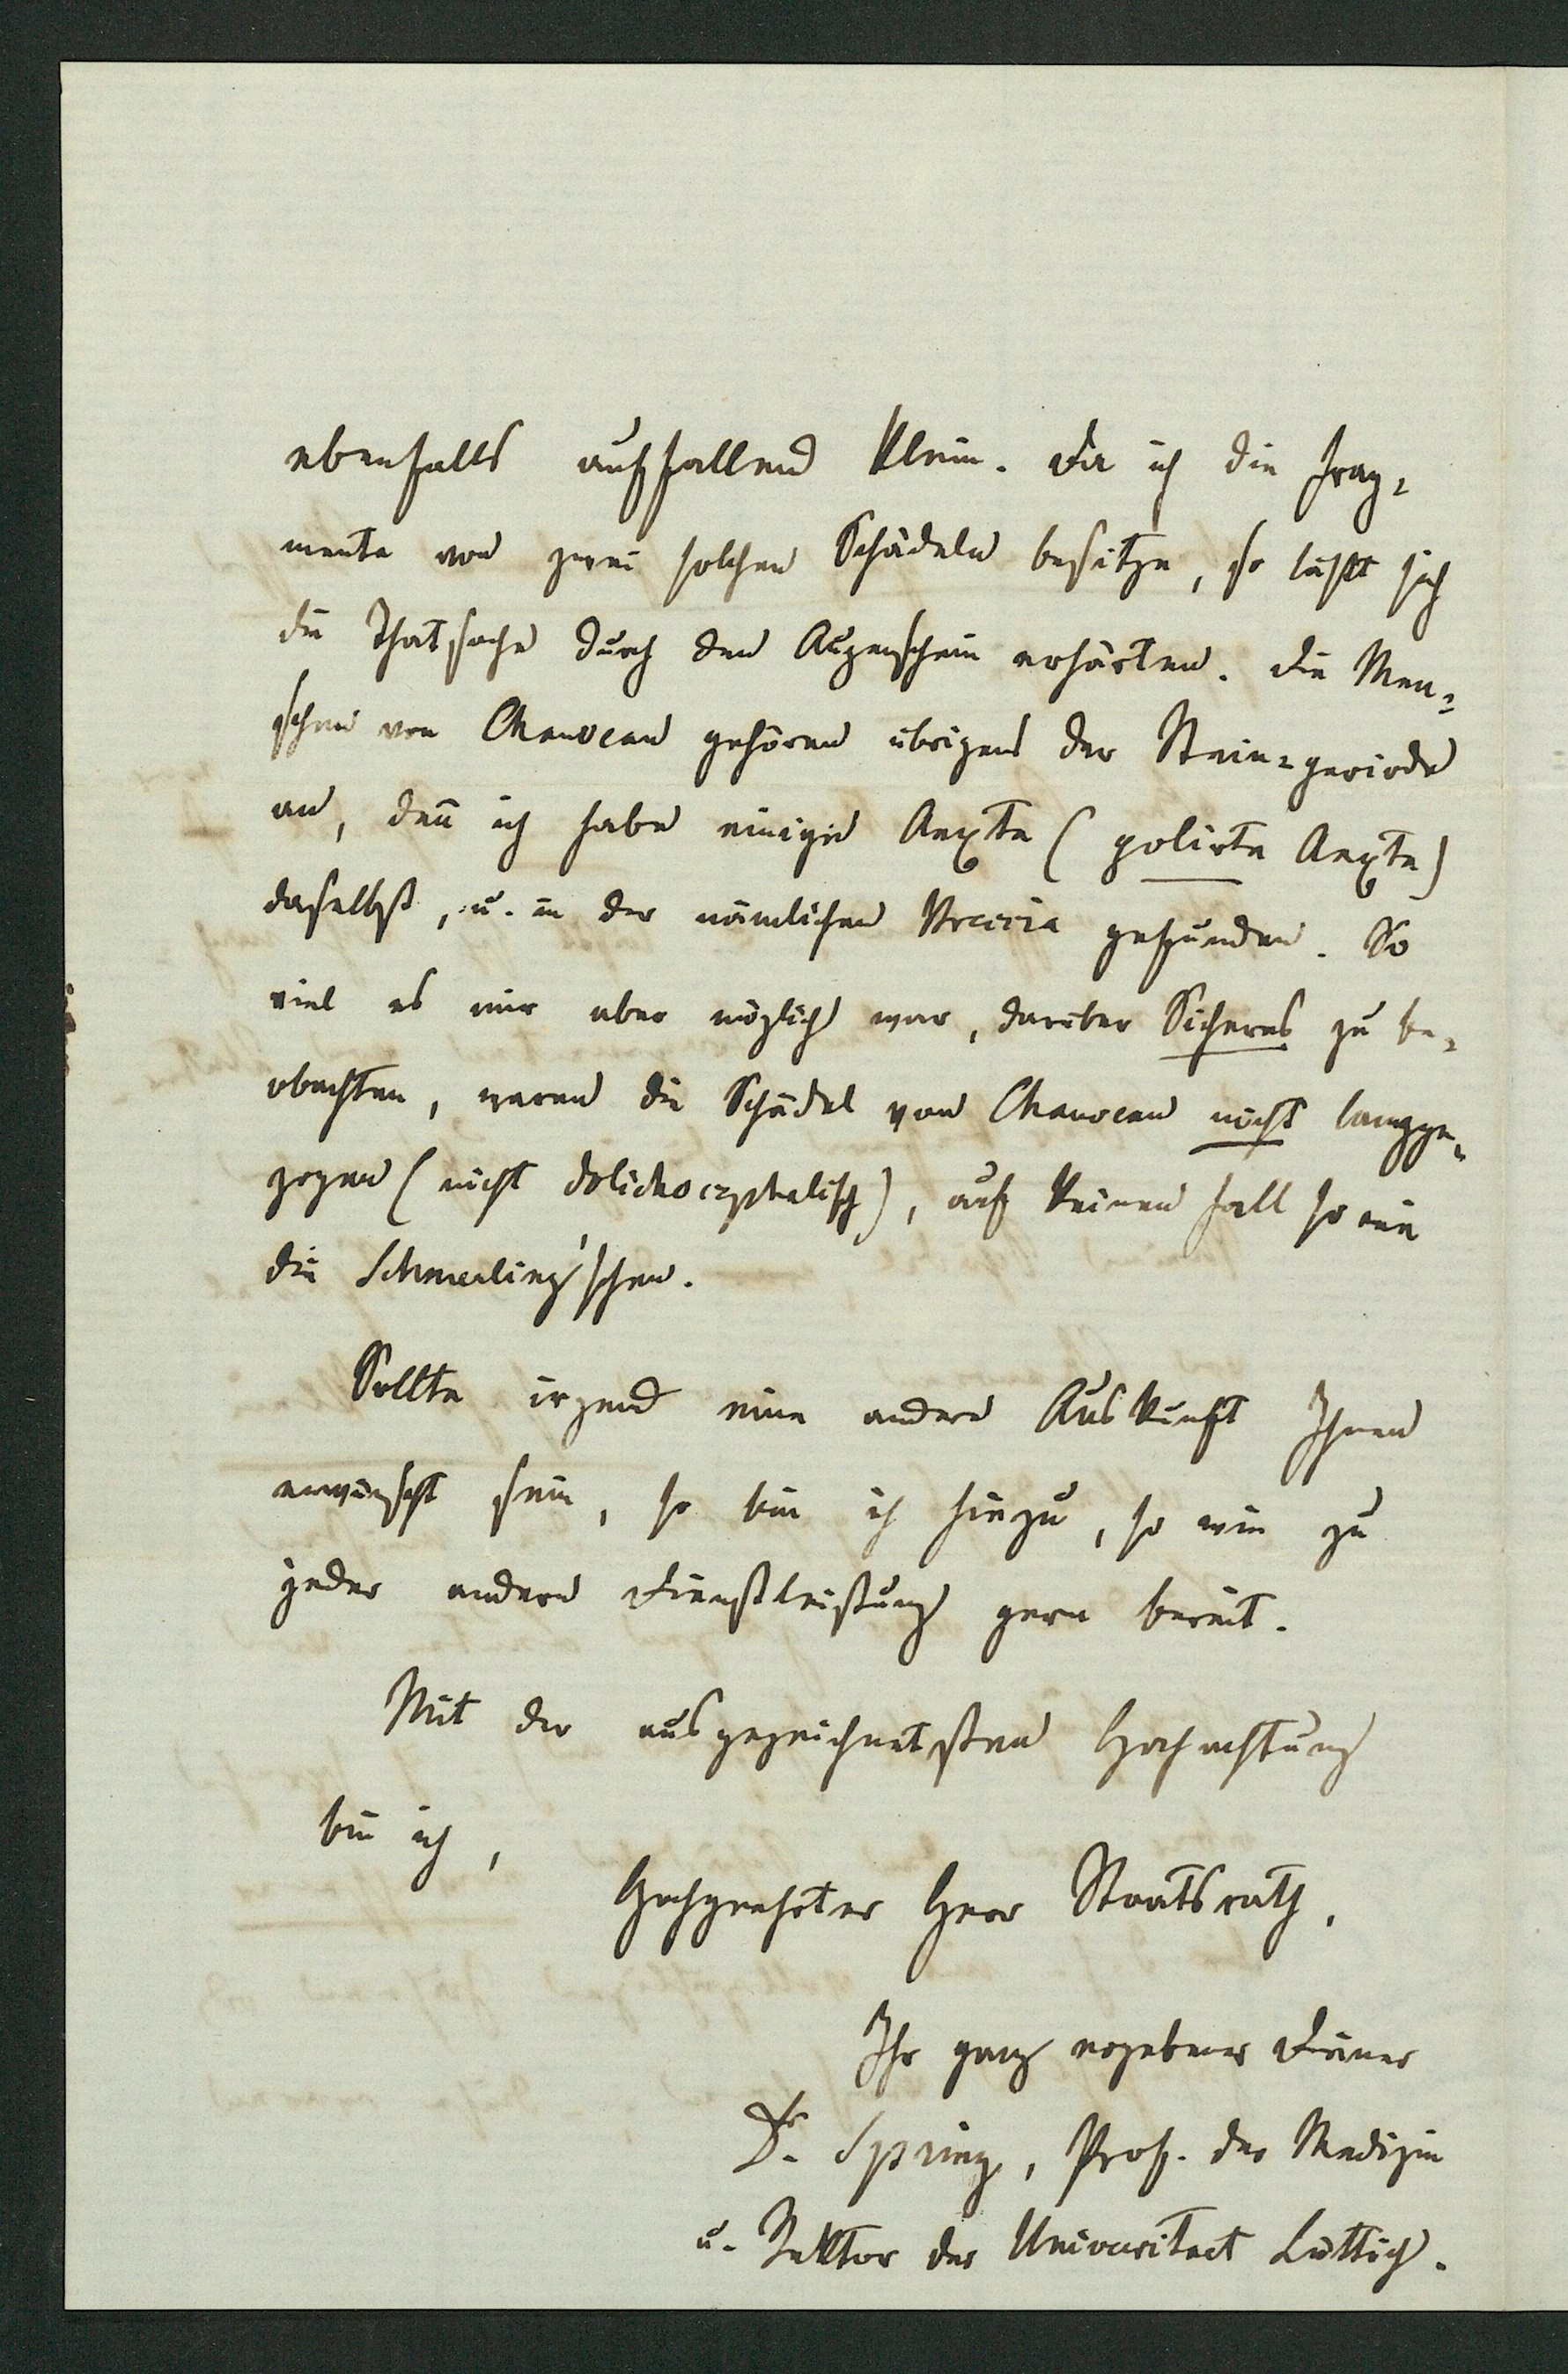 ebenfalls auffallend klein. Da ich die Frag=
mente von zwei solchen Schädeln besitze, so läßt sich
die Thatsache durch den Augenschein erhärten. Die Men=
schen von Chauveau gehören übrigens der Stein=periode
an, den̄ ich habe einige Aexte (polirte Aexte)
daselbst, u. in der nämlichen Breccia gefunden. So
viel es mir aber möglich war, darüber Sicheres zu be=
obachten, waren die Schädel von Chauveau nicht langge=
zogen (nicht dolichocephalisch), auf keinen Fall so wie
die Schmerling'schen.
Sollte irgend eine andere Auskunft Ihnen
erwünscht sein, so bin ich hiezu, so wie zu
jeder andern Dienstleistung gern bereit.
Mit der ausgezeichnetsten Hochachtung
bin ich,
Hochgeehrter Herr Staatsrath,
Ihr ganz ergebener Diener
Dr. Spring, Prof. der Medizin
u. Rektor der Universitaet Lüttich.